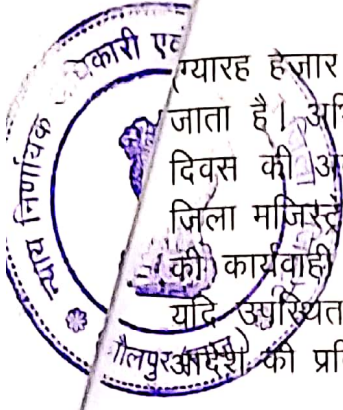 न्याय निर्णायक
कारी एवं
ग्यारह हजार
जाता है।
दिवस की
जिला मजिस्ट्रे
की कार्यवाही
यदि उपस्थित
आदेश की प्रति